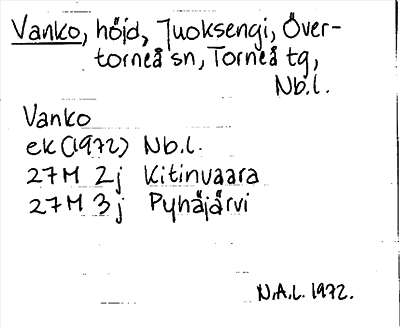 Vanko, höjd, Juoksengi, Över-
torneå sn, Torneå tg,
Nb.l.
Vanko
ek(1972) Nb.l.
27M 2j Kitinvaara
27M 3j Pyhäjärvi
N.A.L. 1972.